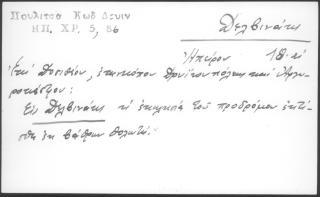 Πουλίτσα Κωδ Δεγιν
ΗΠ. ΧΡ. 5, 86
Δελβινάκι
Ἠπείρου 18
Ἐπὶ Δοσιθέου, ἐπισκόπου Δρυϊνουπόλεως καὶ Ἀργυροκάστρου:
Εἰς Δελβινάκι ἡ ἐκκλησία τοῦ προδρόμου ἐκτίσθη ἐκ βάθρων θολωτή.